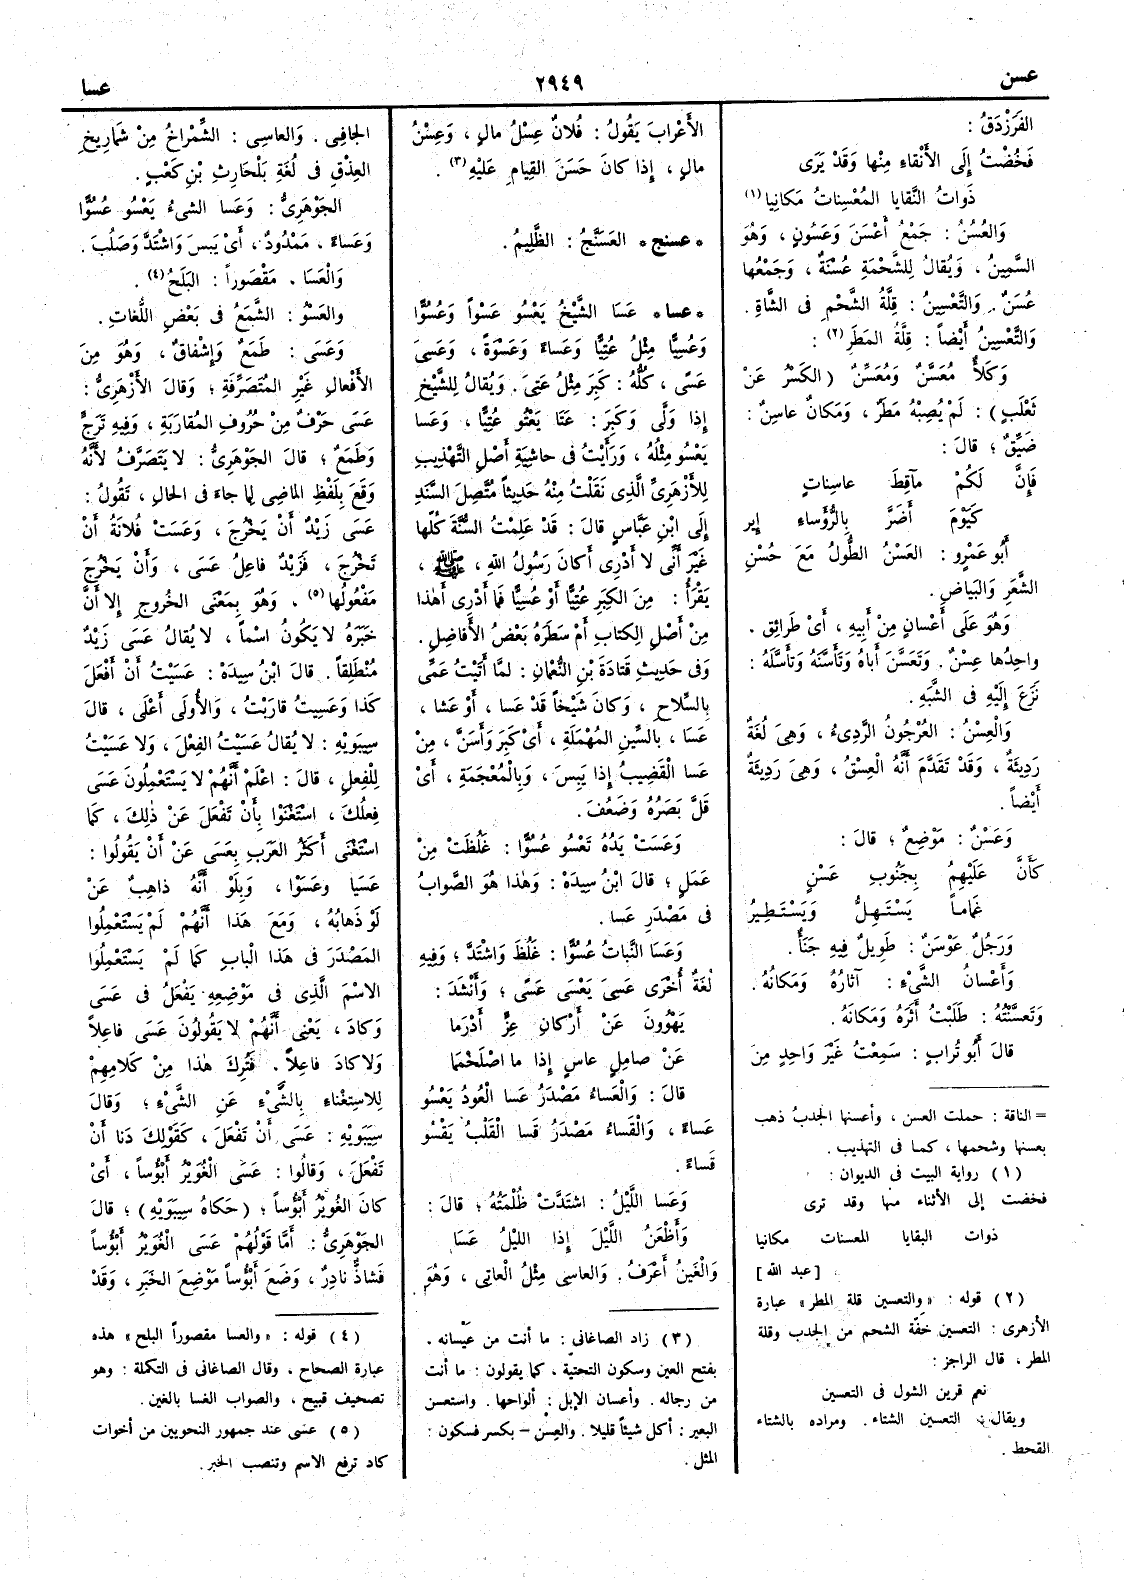 عسن
٢٩٤٩
عسا
الفَرَزْدَقُ :
فَخُضْتُ إِلَى الأَنْقاءِ مِنْها وَقَدْ يَرَى
ذَواتُ النَّقايا المُعْسِناتُ مَكانِيا (١)
وَالعُسُنُ : جَمْعُ أَعْسَنَ وَعَسُونٍ ، وَهُوَ
السَّمِينُ ، وَيُقالُ لِلشَّحْمَةِ عُسْنَةٌ ، وَجَمْعُها
عُسَنٌ . وَالتَّعْسِينُ : قِلَّةُ الشَّحْمِ فى الشَّاةِ .
وَالتَّعْسِينُ أَيْضاً : قِلَّةُ المَطَرِ (٢) :
وَكَلَأٌ مُعَسَّنٌ وَمُعَسِّنٌ (الكَسْرُ عَنْ
ثَعْلَبٍ) : لَمْ يُصِبْهُ مَطَرٌ ، وَمَكانٌ عاسِنٌ :
ضَيِّقٌ ؛ قالَ :
فَإِنَّ لَكُمْ مَآقِطَ عاسِناتٍ
كَيَوْمَ أَضَرَّ بِالرُّؤَساءِ إِير
أَبُو عَمْرٍو : العَسْنُ الطُّولُ مَعَ حُسْنِ
الشَّعَرِ وَالبَياضِ .
وَهُوَ عَلَى أَعْسانٍ مِنْ أَبِيهِ ، أَىْ طَرائِقَ .
واحِدُها عِسْنٌ . وَتَعَسَّنَ أَباهُ وَتَأَسَّنَهُ وَتَأَسَّلَهُ :
نَزَعَ إِلَيْهِ فى الشَّبَهِ .
وَالْعِسْنُ : العُرْجُونُ الرَّدِىءُ ، وَهِىَ لُغَةٌ
رَدِيئَةٌ ، وَقَدْ تَقَدَّمَ أَنَّهُ الْعِسْقُ ، وَهِىَ رَدِيئَةٌ
أَيْضاً .
وَعَسْنٌ : مَوْضِعٌ ؛ قالَ :
كَأَنَّ عَلَيْهِمُ بِجَنُوبِ عَسْنٍ
غَماماً يَسْتَهِلُّ وَيَسْتَطِيرُ
وَرَجُلٌ عَوْسَنٌ : طَوِيلٌ فِيهِ جَنَأٌ .
وَأَعْسانُ الشَّىْءِ : آثارُهُ وَمَكانُهُ .
وَتَعَسَّنْتُهُ : طَلَبْتُ أَثَرَهُ وَمَكانَهُ .
قالَ أَبُو تُرابٍ : سَمِعْتُ غَيْرَ وَاحِدٍ مِنَ
= الناقة : حملت العسن ، وأعسنها الجدبُ ذهب
بعسنها وشحمها ، كما فى التهذيب .
(١) رواية البيت فى الديوان :
فخضت إلى الأثناء منها وقد ترى
ذوات البقايا المعسنات مكانيا
[عبد الله]
(٢) قوله : «والتعسين قلة المطر» عبارة
الأزهرى : التعسين خفّة الشحم من الجدب وقلة
المطر ، قال الراجز :
نعم قرين الشول فى التعسين
ويقال : التعسين الشتاء . ومراده بالشتاء
القحط .
الأَعْرابَ يَقُولُ : فُلانٌ عِسْلُ مالٍ ، وَعِسْنُ
مالٍ ، إِذا كانَ حَسَنَ القِيامِ عَلَيْهِ (٣) .
* عسنج * العَسَنَّجُ : الظَّلِيمُ .
* عسا * عَسَا الشَّيْخُ يَعْسُو عَسْواً وَعُسُوًّا
وَعُسِيًّا مِثْلُ عُتِيًّا وَعَساءً وَعَسْوَةً ، وَعَسِىَ
عَسًى ، كُلُّهُ : كَبِرَ مِثْلُ عَتِىَ . وَيُقالُ لِلشَّيْخِ
إِذا وَلَّى وَكَبِرَ : عَتَا يَعْتُو عُتِيًّا ، وَعَسا
يَعْسُو مِثْلُهُ ، وَرَأَيْتُ فى حاشِيَةِ أَصْلِ التَّهْذِيبِ
لِلأَزْهَرِىِّ الَّذِى نَقَلْتُ مِنْهُ حَدِيثاً مُتَّصِلَ السَّنَدِ
إِلَى ابْنِ عَبَّاسٍ قالَ : قَدْ عَلِمْتُ السُّنَّةَ كُلَّها
غَيْرَ أَنِّى لا أَدْرِى أَكانَ رَسُولُ اللهِ ، ﷺ ،
يَقْرَأُ : مِنَ الكِبَرِ عُتِيًّا أَوْ عُسِيًّا فَما أَدْرِى أَهٰذا
مِنْ أَصْلِ الكِتابِ أَمْ سَطَرَهُ بَعْضُ الأَفاضِلِ .
وَفى حَدِيثِ قَتادَةَ بْنِ النُّعْمانِ : لَمَّا أَتَيْتُ عَمِّى
بِالسِّلاحِ ، وَكانَ شَيْخاً قَدْ عَسا ، أَوْ عَشا ،
عَسَا ، بالسِّينِ المُهْمَلَةِ ، أَىْ كَبِرَ وَأَسَنَّ ، مِنْ
عَسا القَضِيبُ إِذا يَبِسَ ، وَبِالْمُعْجَمَةِ ، أَىْ
قَلَّ بَصَرُهُ وَضَعُفَ .
وَعَسَتْ يَدُهُ تَعْسُو عُسُوًّا : غَلُظَتْ مِنْ
عَمَلٍ ؛ قالَ ابْنُ سِيدَهْ : وَهٰذا هُوَ الصَّوابُ
فى مَصْدَرِ عَسا .
وَعَسَا النَّباتُ عُسُوًّا : غَلُظَ وَاشْتَدَّ ؛ وَفِيهِ
لُغَةٌ أُخْرَى عَسِىَ يَعْسَى عَسًى ؛ وَأَنْشَدَ :
يَهْوُونَ عَنْ أَرْكانِ عِزٍّ أَدْرَما
عَنْ صامِلٍ عاسٍ إِذا ما اصْلَخْمَا
قالَ : وَالْعَساءُ مَصْدَرُ عَسا الْعُودُ يَعْسُو
عَساءً ، وَالْقَساءُ مَصْدَرُ قَسا الْقَلْبُ يَقْسُو
قَساءً .
وَعَسا اللَّيْلُ : اشْتَدَّتْ ظُلْمَتُهُ ؛ قالَ :
وَأَظْعَنُ اللَّيْلَ إِذا اللَّيْلُ عَسَا
وَالْغَينُ أَعْرَفُ . وَالعاسِى مِثْلُ الْعاتِى ، وَهُوَ
(٣) زاد الصاغانى : ما أنت من عَيْسانه .
بفتح العين وسكون التحتيّة ، كما يقولون : ما أنت
من رجاله . وأعسان الإبل : ألواحها . واستعسن
البعير : أكل شيئاً قليلا . والعِسْن – بكسر فسكون :
المثل .
الجافِى . وَالعاسِى : الشِّمْراخُ مِنْ شَمارِيخِ
العِذْقِ فى لُغَةِ بَلْحارِثِ بْنِ كَعْبٍ .
الجَوْهَرِىُّ : وَعَسا الشىءُ يَعْسُو عُسُوًّا
وَعَساءً ، مَمْدُودٌ ، أَىْ يَبِسَ وَاشْتَدَّ وَصَلُبَ .
وَالْعَسا . مَقْصُوراً : البَلَحُ (٤) .
والعَسْوُ : الشَّمَعُ فى بَعْضِ اللُّغاتِ .
وَعَسَى : طَمَعٌ وَإِشْفاقٌ ، وَهُوَ مِنَ
الأَفْعالِ غَيْرِ المُتَصَرِّفَةِ ؛ وَقالَ الأَزْهَرِىُّ :
عَسَى حَرْفٌ مِنْ حُرُوفِ المُقارَبَةِ ، وَفِيهِ تَرَجٍّ
وَطَمَعٌ ؛ قالَ الجَوْهَرِىُّ : لا يَتَصَرَّفُ لأَنَّهُ
وَقَعَ بِلَفْظِ الماضِى لِما جاءَ فى الحالِ ، تَقُولُ :
عَسَى زَيْدٌ أَنْ يَخْرُجَ ، وَعَسَتْ فُلانَةُ أَنْ
تَخْرُجَ ، فَزَيْدٌ فاعِلُ عَسَى ، وَأَنْ يَخْرُجَ
مَفْعُولُها (٥) ، وَهُوَ بِمَعْنَى الخُروجِ إِلا أَنَّ
خَبَرَهُ لا يَكُونُ اسْماً ، لا يُقالُ عَسَى زَيْدٌ
مُنْطَلِقاً . قالَ ابْنُ سِيدَهْ : عَسَيْتُ أَنْ أَفْعَلَ
كَذا وَعَسِيتُ قارَبْتُ ، وَالأُولَى أَعْلَى ، قالَ
سِيبَوَيْهِ : لا يُقالُ عَسَيْتُ الفِعْلَ ، وَلا عَسَيْتُ
لِلْفِعلِ ، قالَ : اعْلَمْ أَنَّهُمْ لا يَسْتَعْمِلُونَ عَسَى
فِعلُكَ ، اسْتَغْنَوْا بِأَنْ تَفْعَلَ عَنْ ذٰلِكَ ، كَما
اسْتَغْنَى أَكْثَرُ العَرَبِ بِعَسَى عَنْ أَنْ يَقُولُوا :
عَسَيا وَعَسَوْا ، وَبِلَوْ أَنَّهُ ذاهِبٌ عَنْ
لَوْ ذَهابُهُ ، وَمَعَ هَذا أَنَّهُمْ لَمْ يَسْتَعْمِلُوا
المَصْدَرَ فى هَذا البابِ كَما لَمْ يَسْتَعْمِلُوا
الاسْمَ الَّذِى فى مَوْضِعِهِ يَفْعَلُ فى عَسَى
وَكادَ ، يَعْنِى أَنَّهُمْ لا يَقُولُونَ عَسَى فاعِلاً
وَلا كادَ فاعِلاً . فَتُرِكَ هٰذا مِنْ كَلامِهِمْ
لِلاِسْتِغْناءِ بِالشَّىْءِ عَنِ الشَّىْءِ ؛ وَقالَ
سِيبَوَيْهِ : عَسَى أَنْ تَفْعَلَ ، كَقَوْلِكَ دَنا أَنْ
تَفْعَلَ ، وَقالُوا : عَسَى الْغُوَيْرُ أَبْؤُساً ، أَىْ
كانَ الغُوَيْرُ أَبْؤُساً ؛ (حَكاهُ سِيبَوَيْهِ) ؛ قالَ
الجَوْهَرِىُّ : أَمَّا قَوْلُهُمْ عَسَى الْغُوَيْرُ أَبْؤُساً
فَشاذٌّ نادِرٌ ، وَضَعَ أَبْؤُساً مَوْضِعَ الخَبَرِ ، وَقَدْ
(٤) قوله : «والعسا مقصوراً البلح» هذه
عبارة الصحاح ، وقال الصاغانى فى التكملة : وهو
تصحيف قبيح ، والصواب الغسا بالغين .
(٥) عسَى عند جمهور النحويين من أخوات
كاد ترفع الاسم وتنصب الخبر .